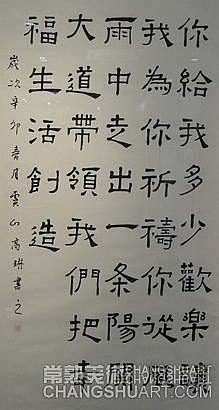 你給我多少歡樂
我為你祈禱你從
雨中走出一条陽
大道帶領我們把幸
福生活創造
歲次辛卯春月雲山高琳書之
常熟美術
CHANGSHUART.COM